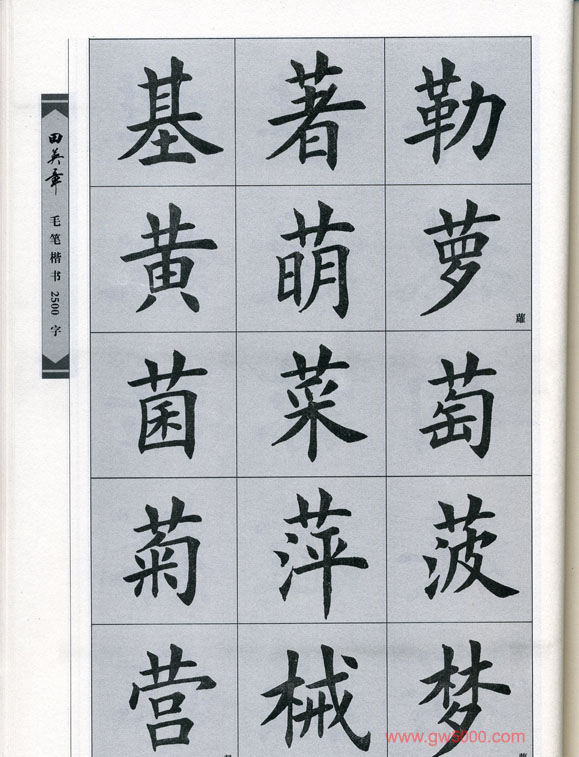 田英章
毛笔楷书2500字
基 著 勒
黄 萌 萝 蘿
菌 菜 萄
菊 萍 菠
营 械 梦
www.gw5000.com